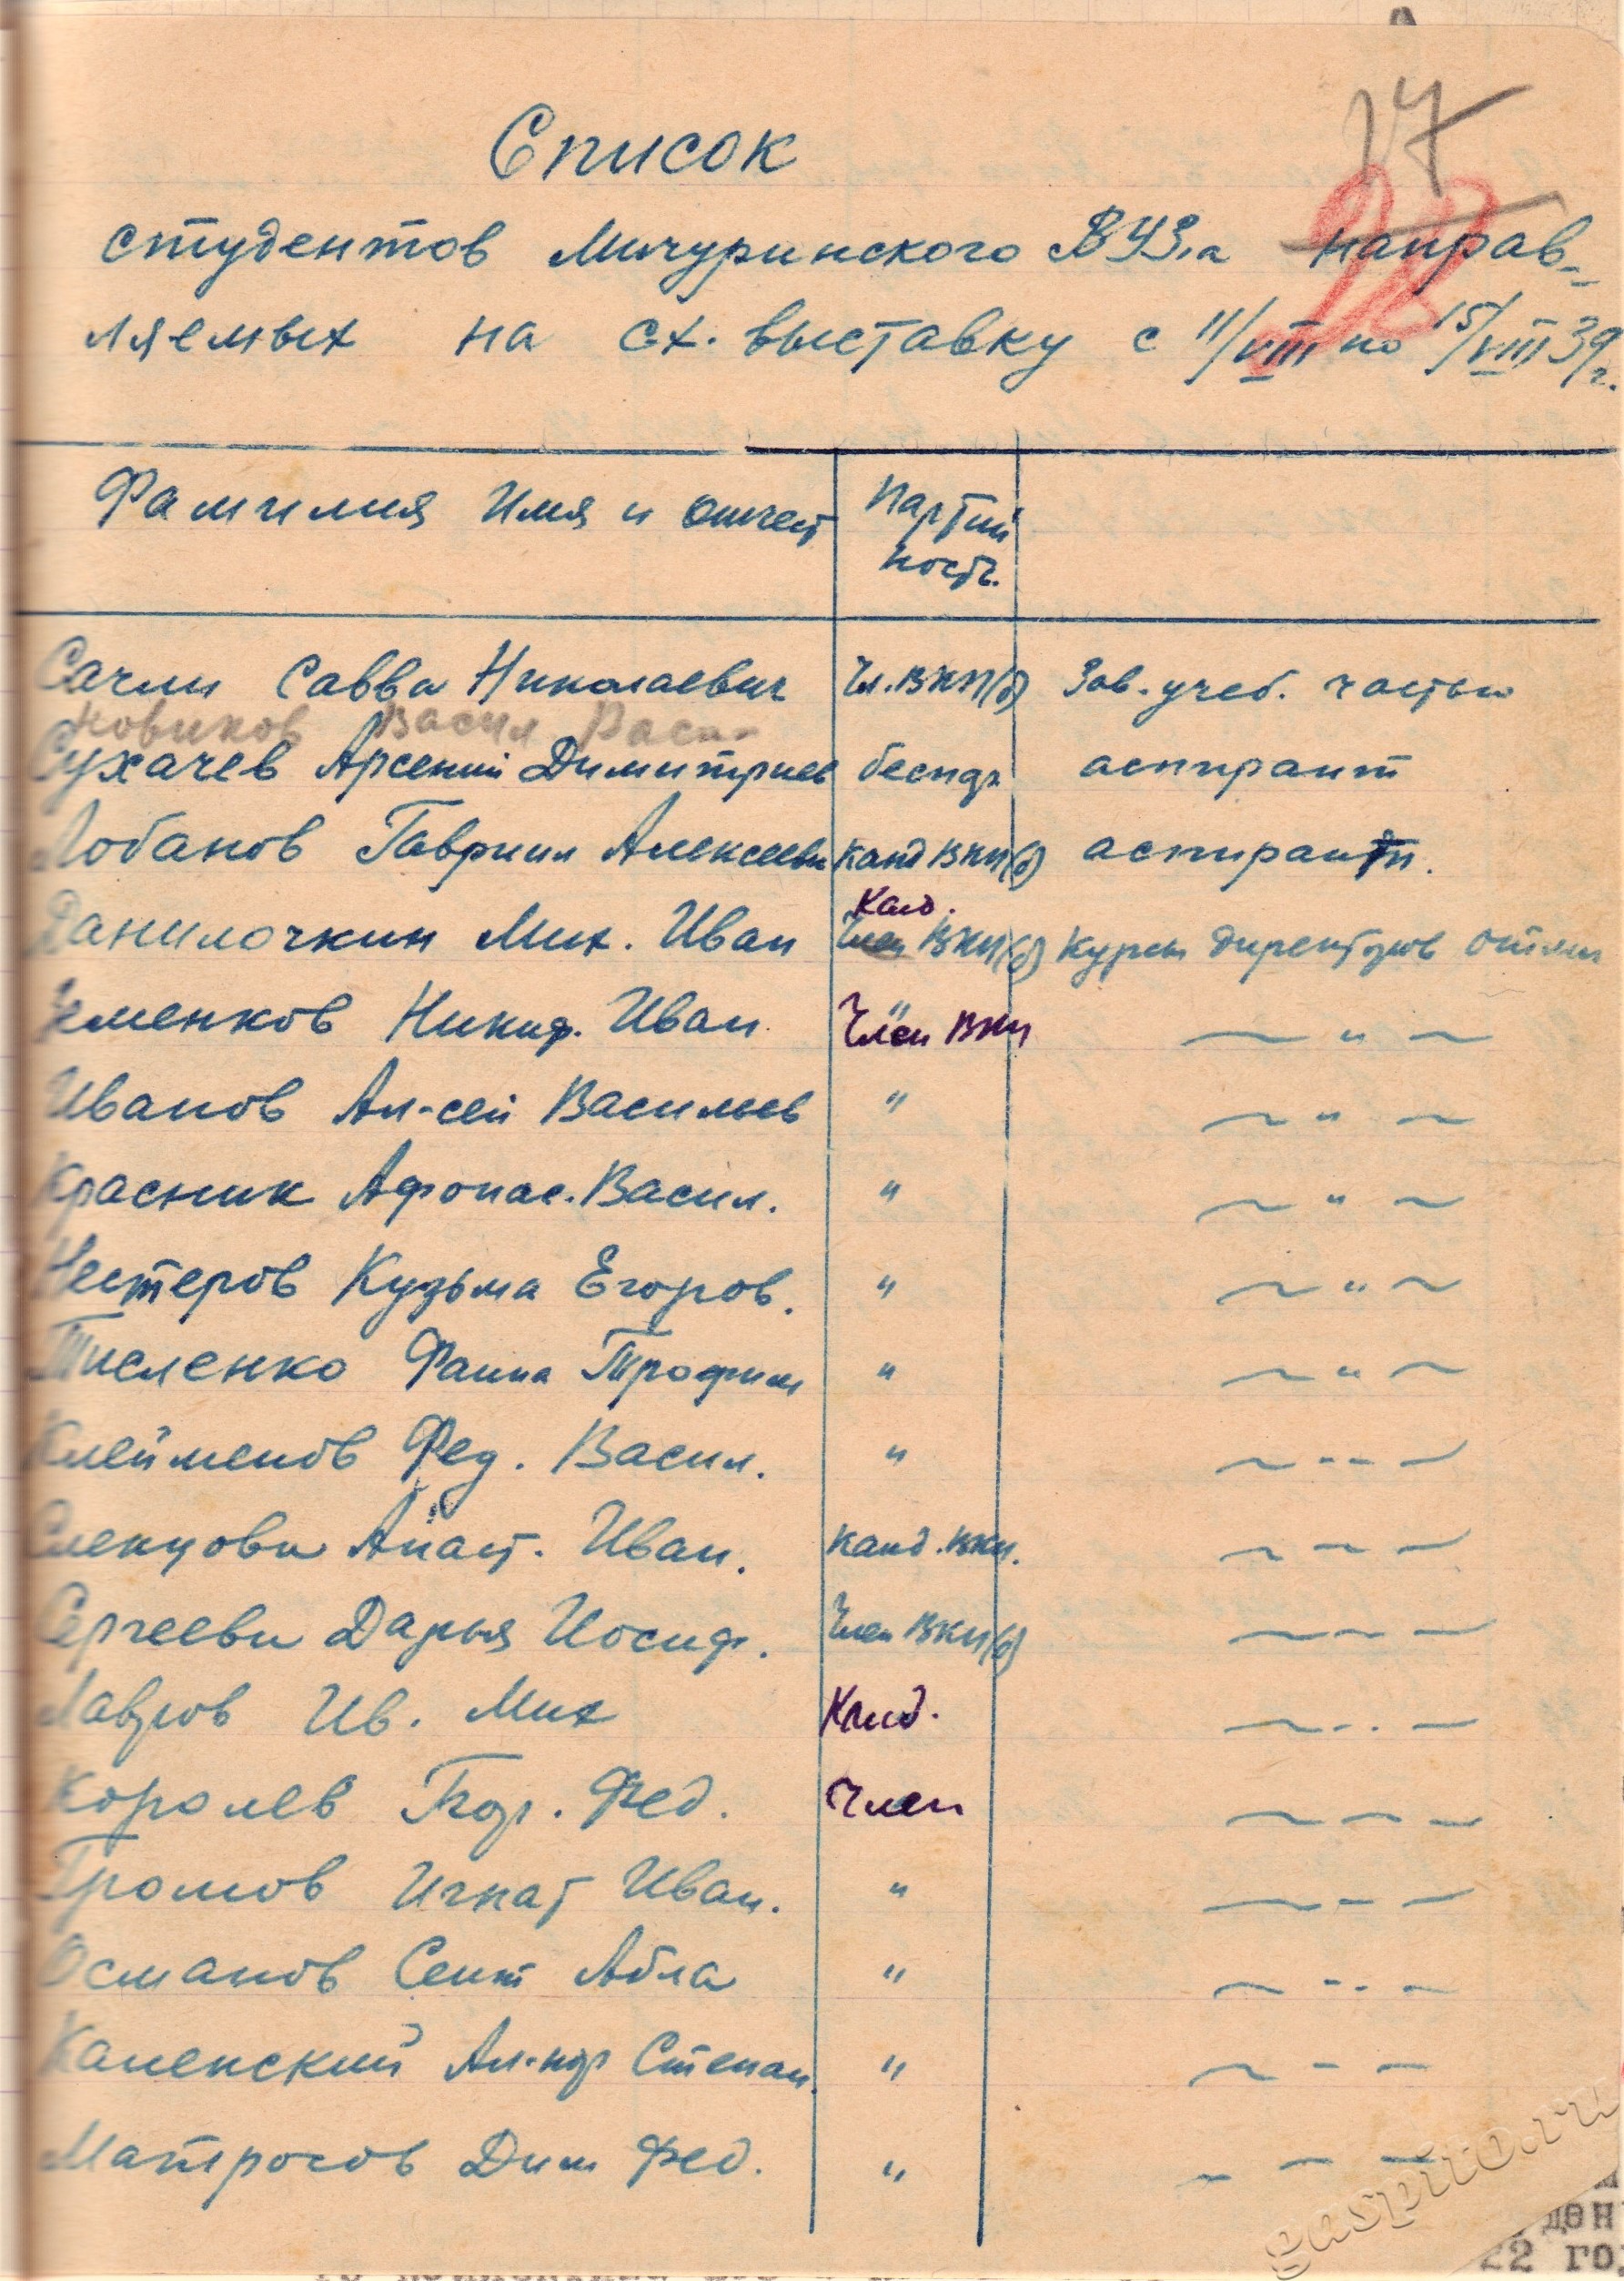 17
28
Список
студентов Мичуринского ВУЗ.а направ-
ляемых на сх. выставку с 11/VIII по 15/VIII 39 г.
Фамилия Имя и отчест
Партий
ность.
Сачли Савва Николаевич Чл. ВКП(б) Зав. учеб. частью
Новиков Васил Васи-
Сухачев Арсений Димитриев беспар аспирант
Лобанов Гавриил Алексееви Канд ВКП(б) аспирант.
Канд.
Данилочкин Мих. Иван Член ВКП(б) Курсы директоров
Иван Член ВКП ~ " ~
Иванов Ал-сей Васильев " ~ " ~
Красник Афонас. Васил. " ~ " ~
Нестеров Кузьма Егоров. " ~ " ~
Тисленко Фаина Трофим " ~ " ~
Клейменов Фед. Васил. " ~ -- —
Слепцова Анаст. Иван. Канд. ВКП. ~ ~ —
Сергеева Дарья Иосиф. Член ВКП(б) ~ ~ —
Лавров Ив. Мих Канд. ~ - . —
Королев Фед. Член ~ ~ —
Громов Игнат Иван. " ~ - —
Османов Сеит Абла " ~ - - —
Каменский Ал-ндр Степан. " ~ - —
Матросов Дим Фед. " ~ — —
gaspito.ru
ден
22 го